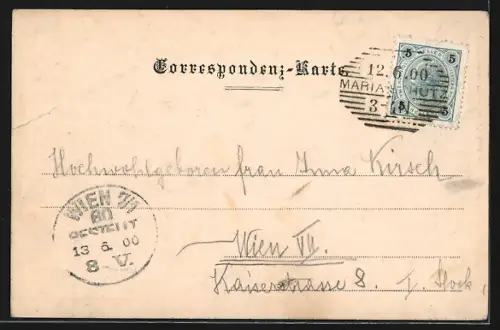 Correspondenz-Karte
5 5
12.6.00
MARIA SCHUTZ
3-
5 5
Hochwohlgeboren frau Irma Kirsch
WIEN 7/1
BESTELLT
13 6 00
8 V.
Wien VII.
Kaiserstrasse 8. I. Stock